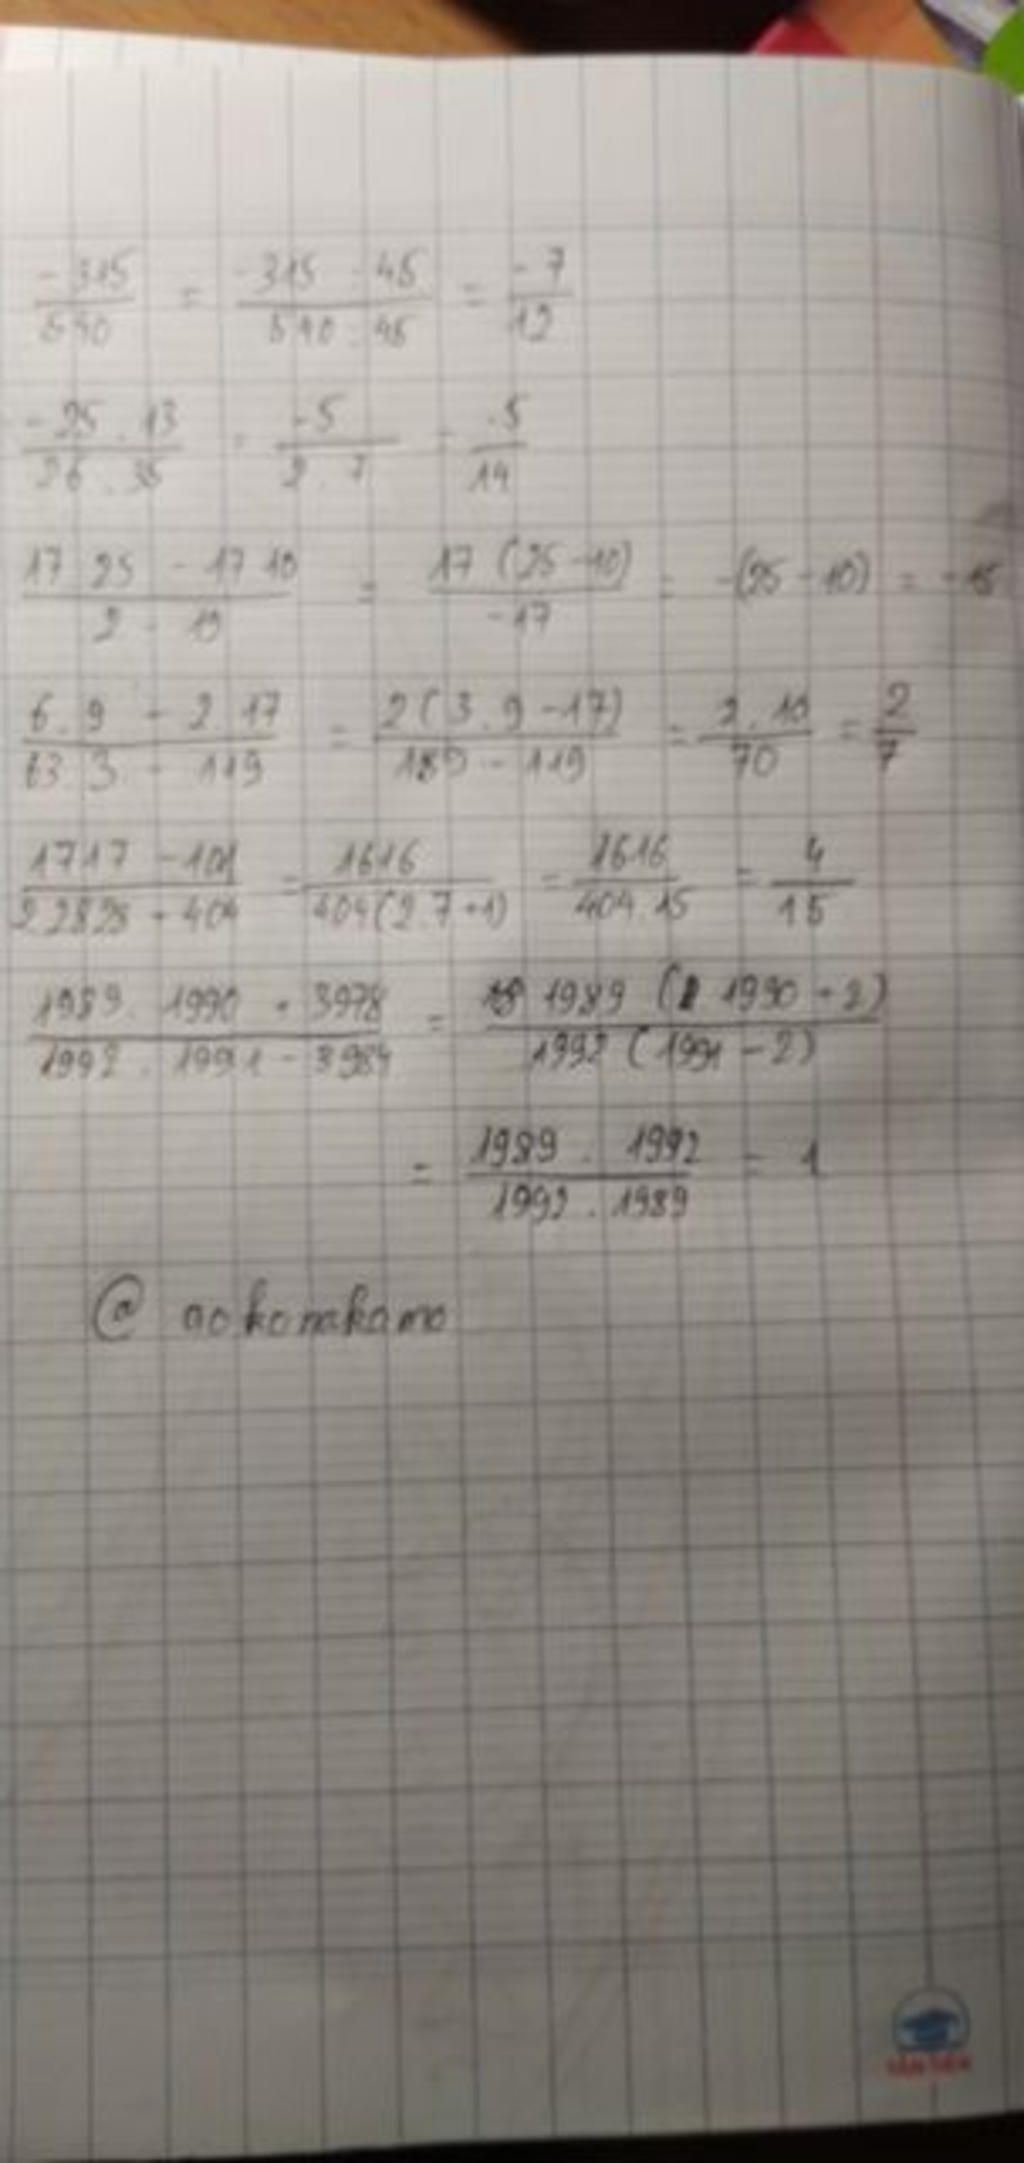 -315/540 = -315 : 45/540 : 45 = -7/12
-25 . 13/26 . 35 = -5/2 . 7 = -5/14
17 25 - 17 10/2 - 19 = 17 (25 - 10)/-17 = -(25 - 10) = -15
6 . 9 - 2 . 17/63 3 - 119 = 2 (3 . 9 - 17)/189 - 119 = 2 . 10/70 = 2/7
1717 - 101/2 2828 + 404 = 1616/404 (2 . 7 + 1) = 1616/404 . 15 = 4/15
1989 . 1990 + 3978/1992 . 1991 - 3984 = 1989 (1990 + 2)/1992 (1991 - 2)
= 1989 . 1992/1992 . 1989 = 1
@ aokonakamo